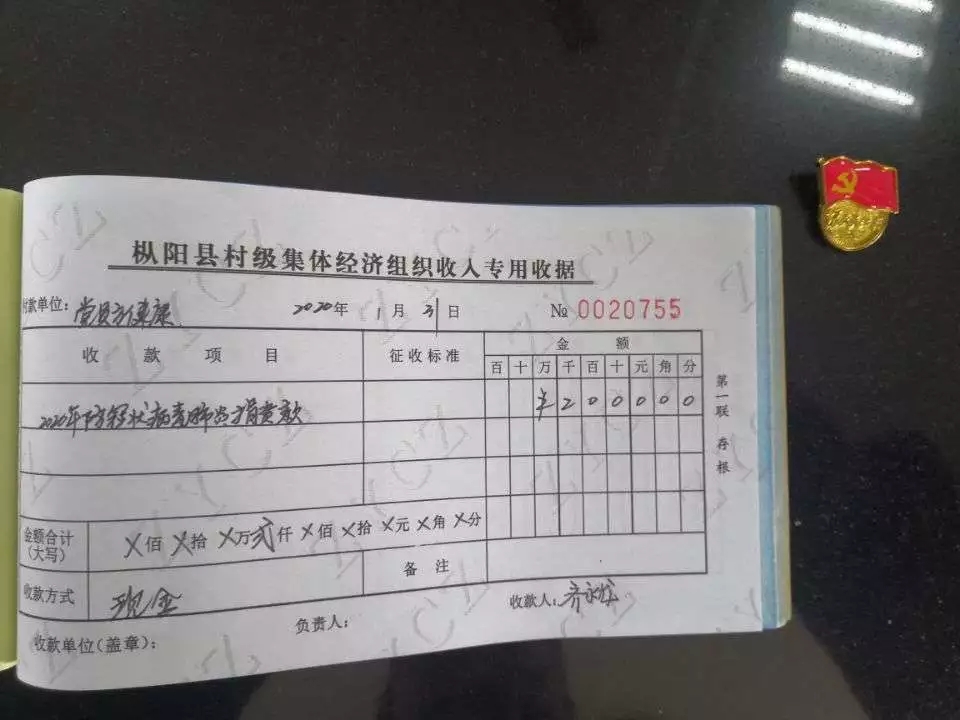 枞阳县村级集体经济组织收入专用收据
付款单位: 党员方 2020年 1月 31日 № 0020755
收款项目 征收标准 金额
百 十 万 千 百 十 元 角 分
2020年防冠状病毒肺炎捐赠款 ¥ 2 0 0 0 0 0
金额合计(大写) X佰 X拾 X万 贰仟 X佰 X拾 X元 X角 X分
收款方式 现金 备注
收款单位(盖章): 负责人: 收款人: 齐
第一联 存根
ZYCZ